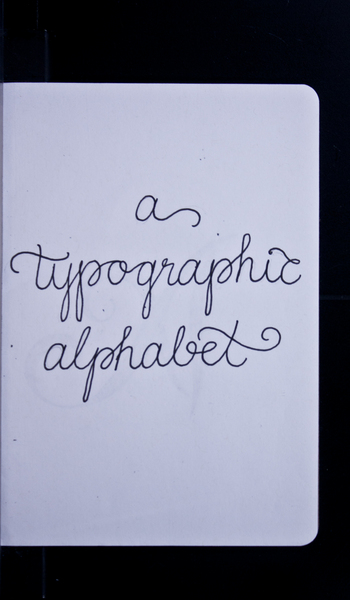 a
typographic
alphabet